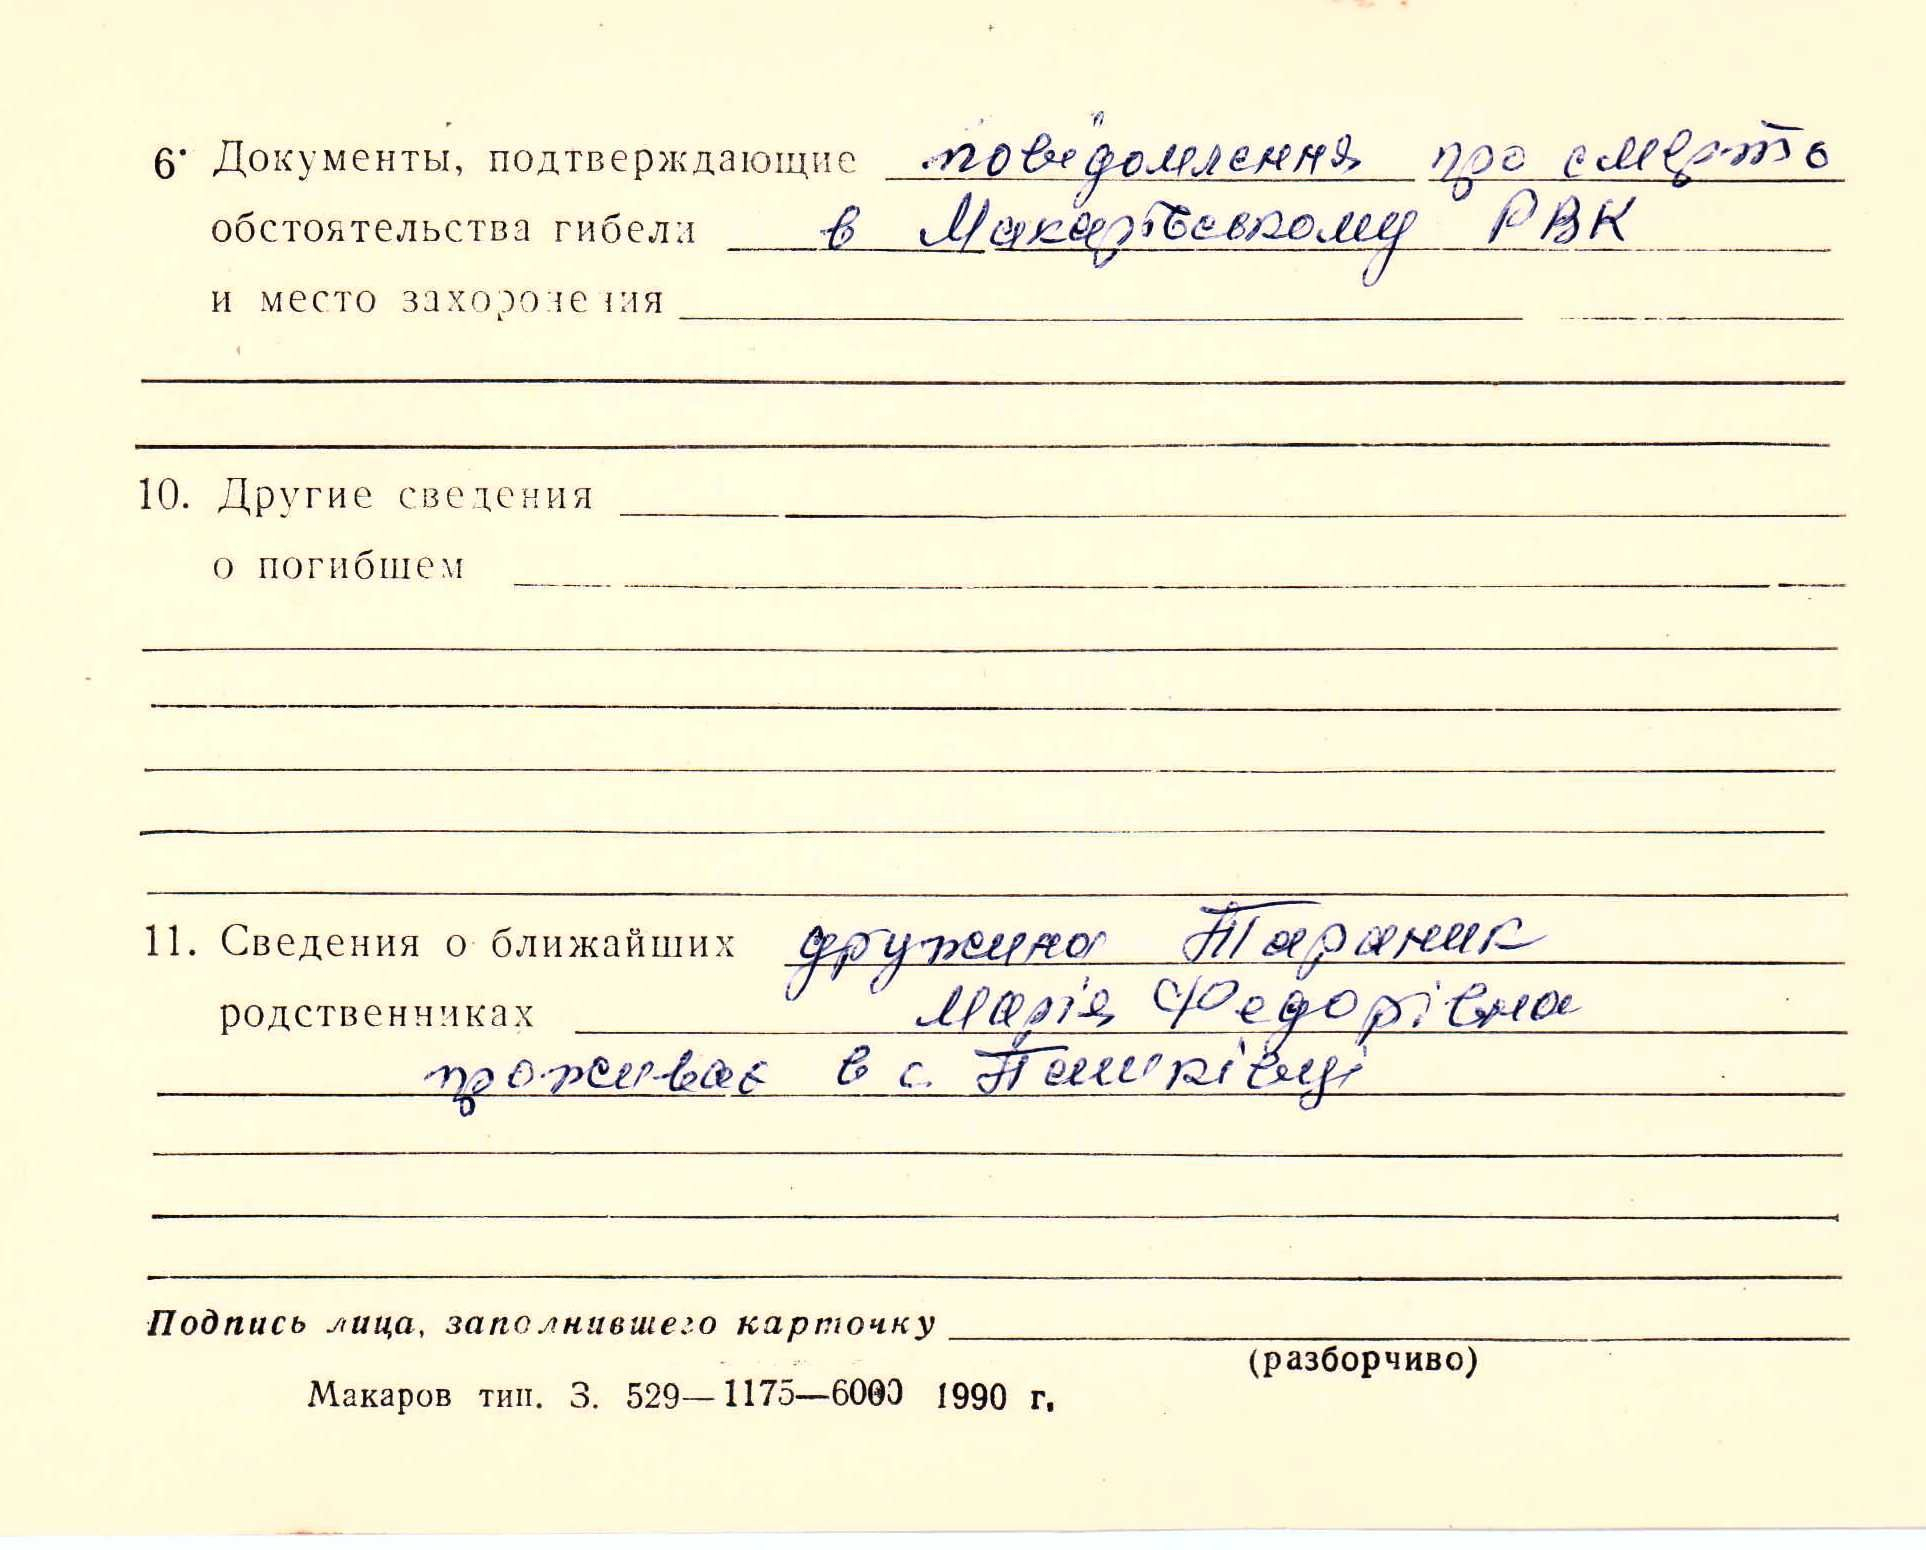 6. Документы, подтверждающие повідомлення про смерть
обстоятельства гибели в Макарівському РВК
и место захоронения
10. Другие сведения
о погибшем
11. Сведения о ближайших дружина Тараник
родственниках Марія Федорівна
проживає в с. Пашківці
Подпись лица, заполнившего карточку
(разборчиво)
Макаров тип. З. 529—1175—6000 1990 г.